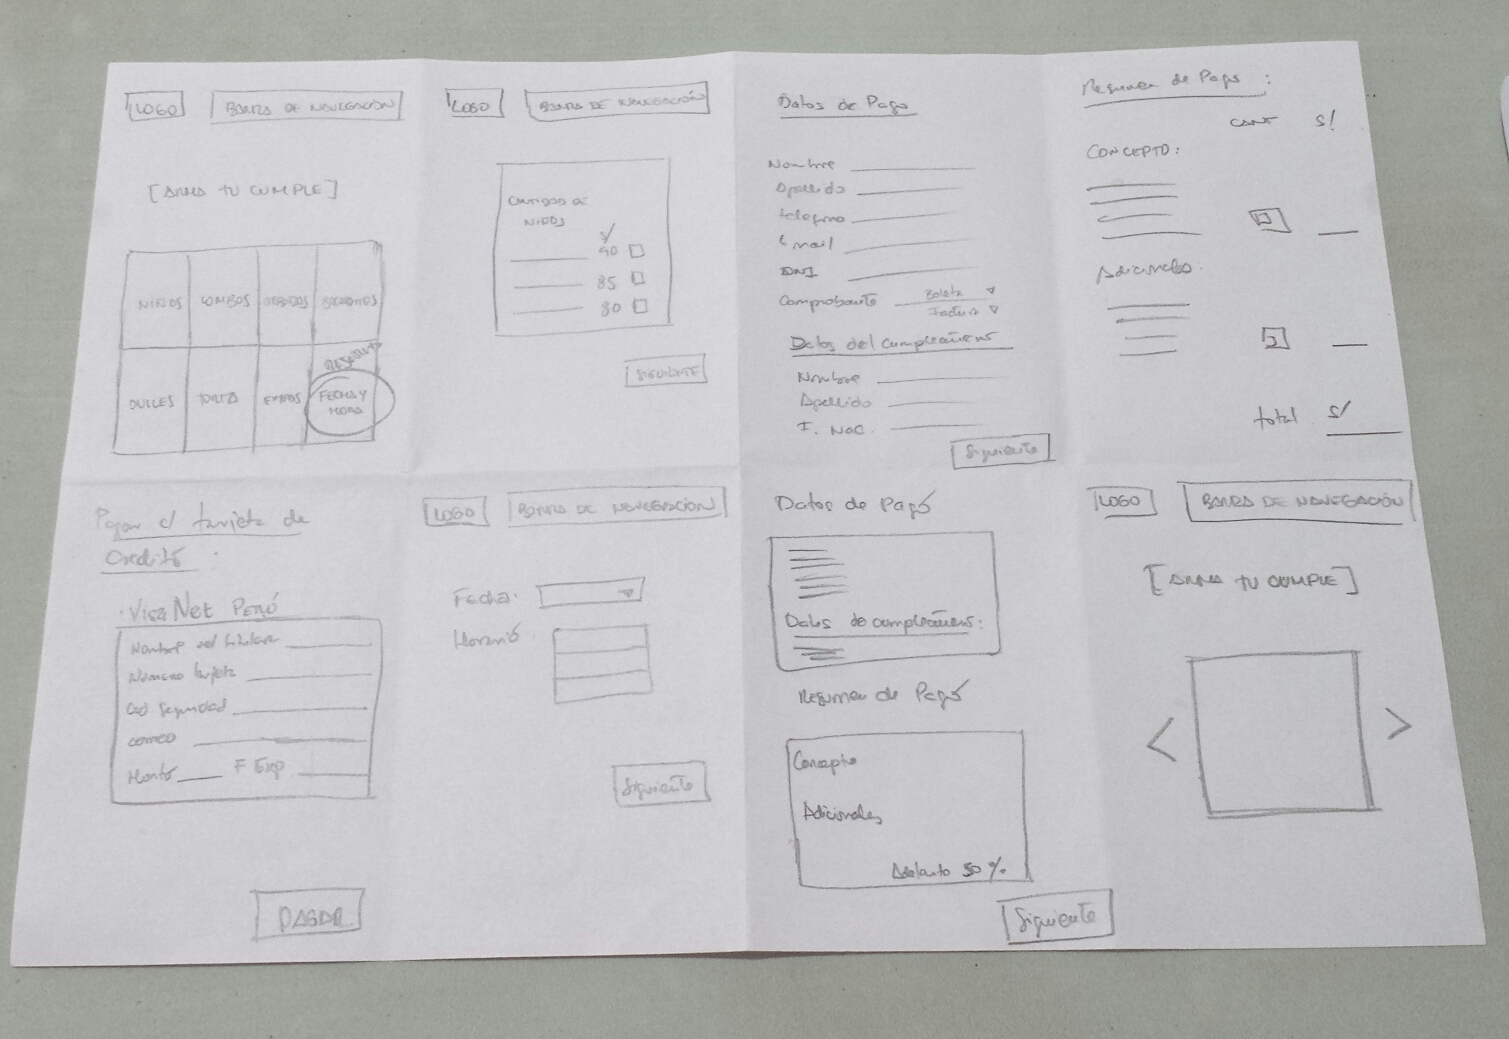 LOGO
BARRA DE NAVEGACIÓN
[ARMA TU CUMPLE]
NIÑOS
COMBOS
BOCADITOS
RESERVA
DULCES
TORTA
EXTRAS
FECHA Y
HORA
LOGO
BARRA DE NAVEGACIÓN
CANTIDAD DE
NIÑOS
S/
90
85
80
SIGUIENTE
Datos de Pago
Nombre
Apellido
telefono
Email
DNI
Comprobante
Boleta
Factura
Datos del cumpleañero
Nombre
Apellido
F. Nac.
Siguiente
Resumen de Pago :
CANT S/
CONCEPTO:
Adicionales.
total S/
Pagar c/ tarjeta de
Credito :
· Visa Net PERÚ
Nombre del titular
Número tarjeta
Cod Seguridad
correo
Monto F Exp
PAGAR
LOGO
BARRA DE NAVEGACIÓN
Fecha:
Horario
Siguiente
Datos de Pago
Datos de cumpleañero:
Resumen de Pago
Concepto
Adicionales
Adelanto 50 %
Siguiente
LOGO
BARRA DE NAVEGACIÓN
[ARMA TU CUMPLE]
< >